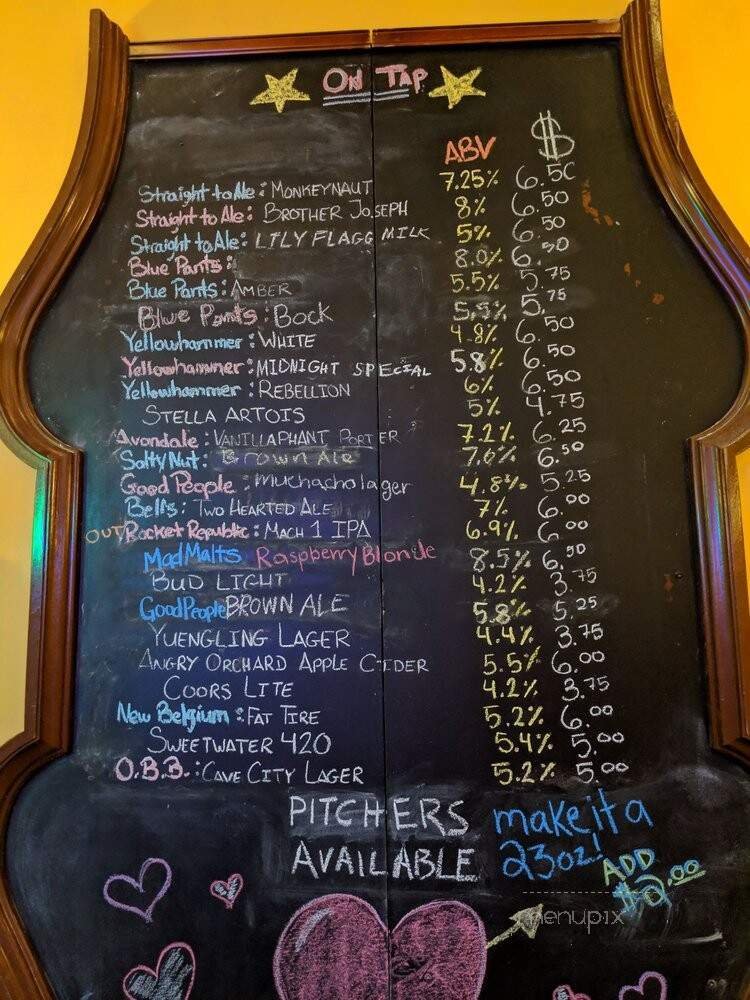 ON TAP
ABV $
Straight to Ale: MONKEYNAUT 7.25% 6.50
Straight to Ale: BROTHER JOSEPH 8% 6.50
Straight to Ale: LILY FLAGG MILK 5% 6.50
Blue Pants: 8.0% 6.50
Blue Pants: AMBER 5.5% 5.75
Blue Pants: BOCK 5.5% 5.75
Yellowhammer: WHITE 4.8% 6.50
Yellowhammer: MIDNIGHT SPECIAL 5.8% 6.50
Yellowhammer: REBELLION 6% 6.50
STELLA ARTOIS 5% 4.75
Avondale: VANILLAPHANT PORTER 7.2% 6.25
Salty Nut: Brown Ale 7.6% 6.50
Good People: muchacho lager 4.8% 5.25
Bell's: TWO HEARTED ALE 7% 6.00
OUT Rocket Republic: MACH 1 IPA 6.9% 6.00
Mad Malts Raspberry Blonde 8.5% 6.50
BUD LIGHT 4.2% 3.75
Good People BROWN ALE 5.8% 5.25
YUENGLING LAGER 4.4% 3.75
ANGRY ORCHARD APPLE CIDER 5.5% 6.00
COORS LITE 4.2% 3.75
New Belgium: FAT TIRE 5.2% 6.00
SWEETWATER 420 5.4% 5.00
O.B.B.: CAVE CITY LAGER 5.2% 5.00
PITCHERS AVAILABLE
make it a
23oz!
ADD
$2.00
menupix